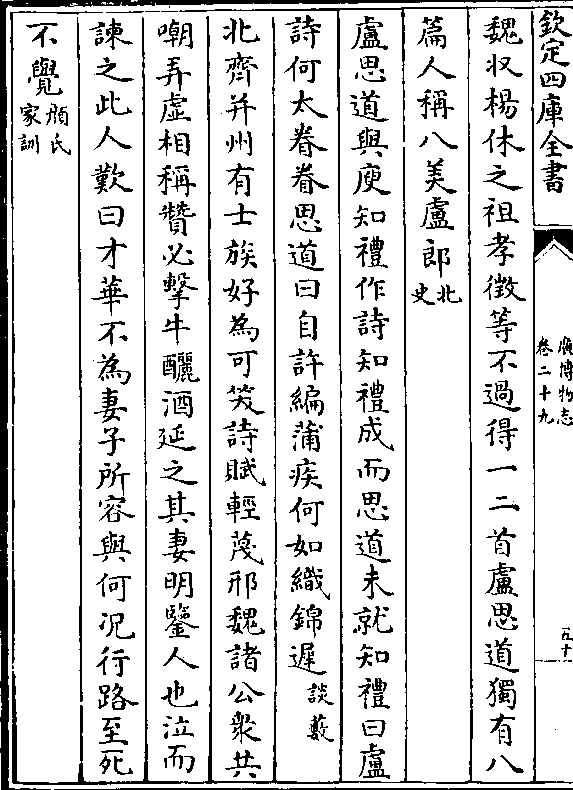 欽定四庫全書
廣博物志
卷二十九
五十
魏収楊休之祖孝徴等不過得一二首盧思道獨有八
篇人稱八美盧郎北史
盧思道與庾知禮作詩知禮成而思道未就知禮曰盧
詩何太眷眷思道曰自許編蒲疾何如織錦遲談藪
北齊并州有士族好為可笑詩賦輕蔑邢魏諸公衆共
嘲弄虛相稱贊必擊牛釃酒延之其妻明鑒人也泣而
諫之此人歎曰才華不為妻子所容與何況行路至死
不覺顔氏家訓